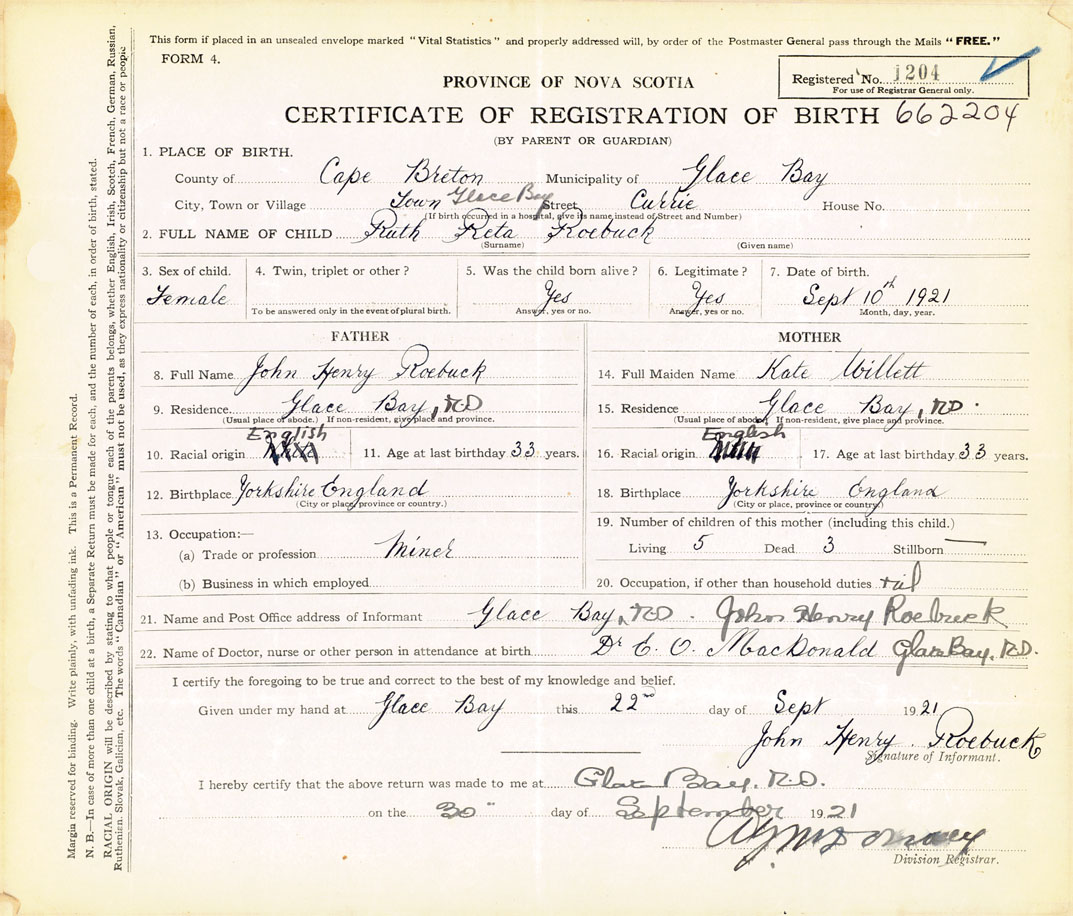 This form if placed in an unsealed envelope marked "Vital Statistics" and properly addressed will, by order of the Postmaster General pass through the Mails "FREE."
FORM 4.
Registered No. 1204
For use of Registrar General only.
PROVINCE OF NOVA SCOTIA
CERTIFICATE OF REGISTRATION OF BIRTH 662204
(BY PARENT OR GUARDIAN)
1. PLACE OF BIRTH.
County of Cape Breton Municipality of Glace Bay
City, Town or Village Town Glace Bay Street Currie House No.
(If birth occurred in a hospital, give its name instead of Street and Number)
2. FULL NAME OF CHILD Ruth Reta Roebuck
(Surname) (Given name)
3. Sex of child. 4. Twin, triplet or other? 5. Was the child born alive? 6. Legitimate? 7. Date of birth.
Female Yes Yes Sept 10th 1921
To be answered only in the event of plural birth. Answer, yes or no. Answer, yes or no. Month, day, year.
FATHER
8. Full Name John Henry Roebuck
9. Residence Glace Bay, RD
(Usual place of abode.) If non-resident, give place and province.
English
10. Racial origin 11. Age at last birthday 33 years.
12. Birthplace Yorkshire England
(City or place, province or country.)
13. Occupation:—
(a) Trade or profession Miner
(b) Business in which employed
MOTHER
14. Full Maiden Name Kate Willett
15. Residence Glace Bay, RD.
(Usual place of abode.) If non-resident, give place and province.
English
16. Racial origin 17. Age at last birthday 33 years.
18. Birthplace Yorkshire England
(City or place, province or country.)
19. Number of children of this mother (including this child.)
Living 5 Dead 3 Stillborn —
20. Occupation, if other than household duties
21. Name and Post Office address of Informant Glace Bay, RD. John Henry Roebuck
22. Name of Doctor, nurse or other person in attendance at birth Dr E. O. MacDonald Glace Bay. R.D.
I certify the foregoing to be true and correct to the best of my knowledge and belief.
Given under my hand at Glace Bay this 22nd day of Sept 1921
John Henry Roebuck
Signature of Informant.
I hereby certify that the above return was made to me at Glace Bay. R.D.
on the 30 day of September 1921
Division Registrar.
Margin reserved for binding. Write plainly, with unfading ink. This is a Permanent Record.
N. B.—In case of more than one child at a birth, a Separate Return must be made for each, and the number of each, in order of birth, stated.
RACIAL ORIGIN will be described by stating to what people or tongue each of the parents belongs, whether English, Irish, Scotch, French, German, Russian,
Ruthenian, Slovak, Galician, etc. The words "Canadian" or "American" must not be used, as they express nationality or citizenship but not a race or people